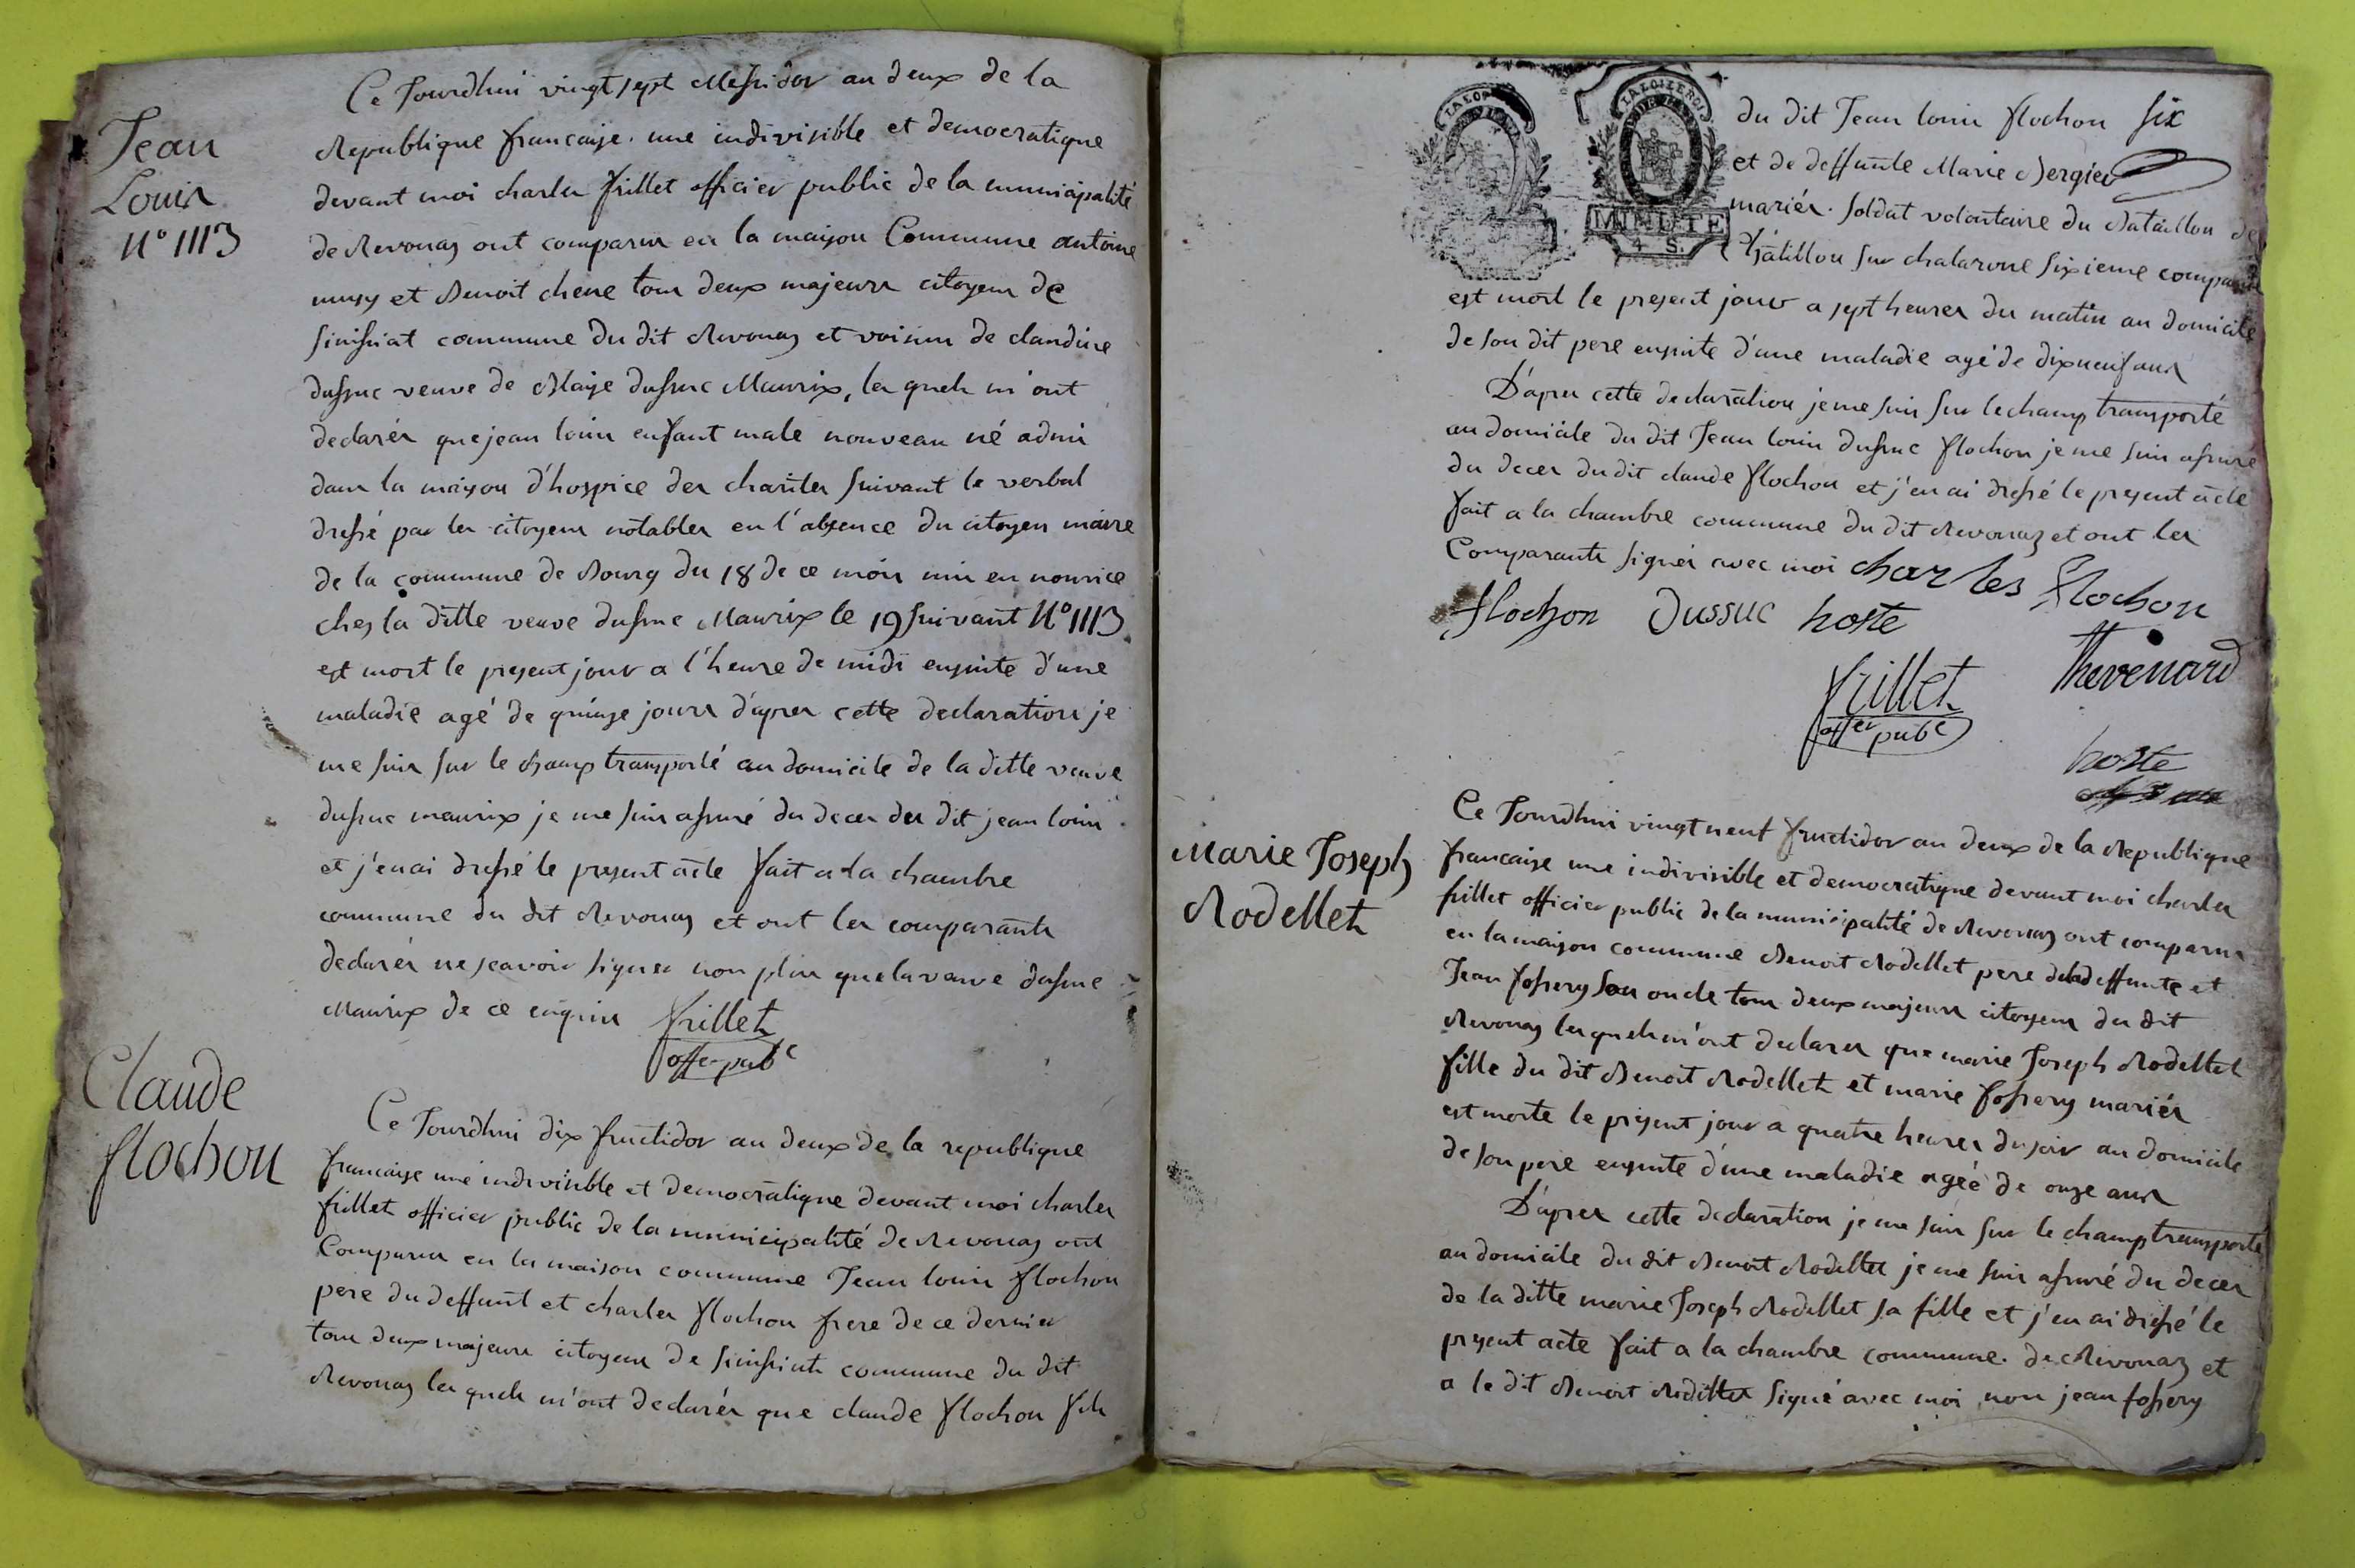 Jean
Louis
N° 1113
Ce Jourdhui vingt sept Messidor an deux de la
Republique francaise. une indivisible et democratique
devant moi charles frillet officier public de la municipalité
de Revonas ont comparus en la maison Commune antoine
musy et Benoit chene tous deux majeurs citoyens de
Sinissiat commune du dit Revonas et voisins de claudine
dussuc veuve de Blaise dussuc Maurix, les quels m'ont
declarés que jean louis enfant male nouveau né admis
dans la maison d'hospice des charités suivant le verbal
dressé par les citoyens notables en l'absence du citoyen maire
de la commune de Bourg du 18 de ce mois mis en nourice
ches la ditte veuve dussuc Maurix le 19 suivant N° 1113
est mort le present jour a l'heure de midi ensuite d'une
maladie agé de quinze jours d'apres cette declaration je
me suis sur le champ transporté au domicile de la ditte veuve
dussuc maurix je me suis assuré du deces du dit jean louis
et j'en ai dressé le present acte fait a la chambre
commune du dit Revonas et ont les comparants
declarés ne scavoir signer non plus que la veuve dussuc
Maurix de ce enquis frillet
offer pubc
Claude
flochon
Ce Jourdhui dix fructidor an deux de la republique
francaise une indivisible et democratique devant moi charles
frillet officier public de la municipalité de Revonas ont
Comparus en la maison commune Jean louis flochon
pere du deffunt et charles flochon frere de ce dernier
tous deux majeurs citoyens de sinissiat commune du dit
Revonas les quels m'ont declarés que claude flochon fils
LA LOI LE ROI
MINUTE
4 S.
du dit Jean louis flochon six
et de deffunte Marie Bergier
mariés. soldat volontaire du Bataillon de
Châtillon sur chalarone sixieme compagnie
est mort le present jour a sept heures du matin au domicile
de son dit pere ensuite d'une maladie agé de dixneuf ans
D'apres cette declaration je me suis sur le champ transporté
au domicile du dit Jean louis dussuc flochon je me suis assuré
du deces du dit claude flochon et j'en ai dressé le present acte
fait a la chambre commune du dit Revonas et ont les
Comparants signés avec moi charles flochon
flochon Dussuc hoste
Thevenard
frillet
offer pubc
hoste
Marie Joseph
Rodellet
Ce Jourdhui vingt neuf fructidor an deux de la Republique
francaise une indivisible et democratique devant moi charles
frillet officier public de la municipalité de Revonas ont comparus
en la maison commune Benoit Rodellet pere de la deffunte et
Jean fossery son oncle tous deux majeurs citoyens du dit
Revonas les quels m'ont declarés que marie Joseph Rodellet
fille du dit Benoit Rodellet et marie fossery mariés
est morte le present jour a quatre heures du soir au domicile
de son pere ensuite d'une maladie agée de onze ans
D'apres cette declaration je me suis sur le champ transporté
au domicile du dit Benoit Rodellet je me suis assuré du deces
de la ditte marie Joseph Rodellet sa fille et j'en ai dressé le
present acte fait a la chambre commune. de Revonas et
a le dit Benoit Rodellet signé avec moi non jean fossery